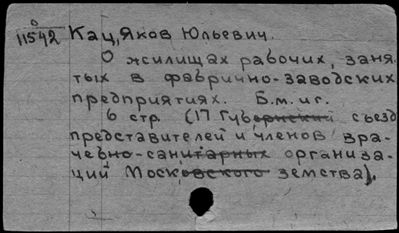 о
11542 Кац, Яков Юльевич.
О жилищах рабочих, заня-
тых в фабрично-заводских
предприятиях. Б.м. и г.
6 стр (17 Губернский съезд
представителей и членов вра-
чебно-санитарных организа-
ций Московского земства).